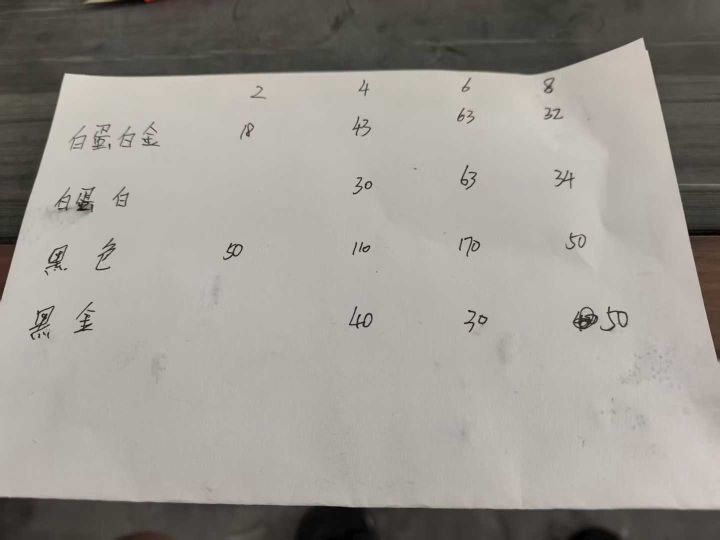 2 4 6 8
白蛋白金 18 43 63 32
白蛋白 30 63 34
黑色 50 110 170 50
黑金 40 30 50